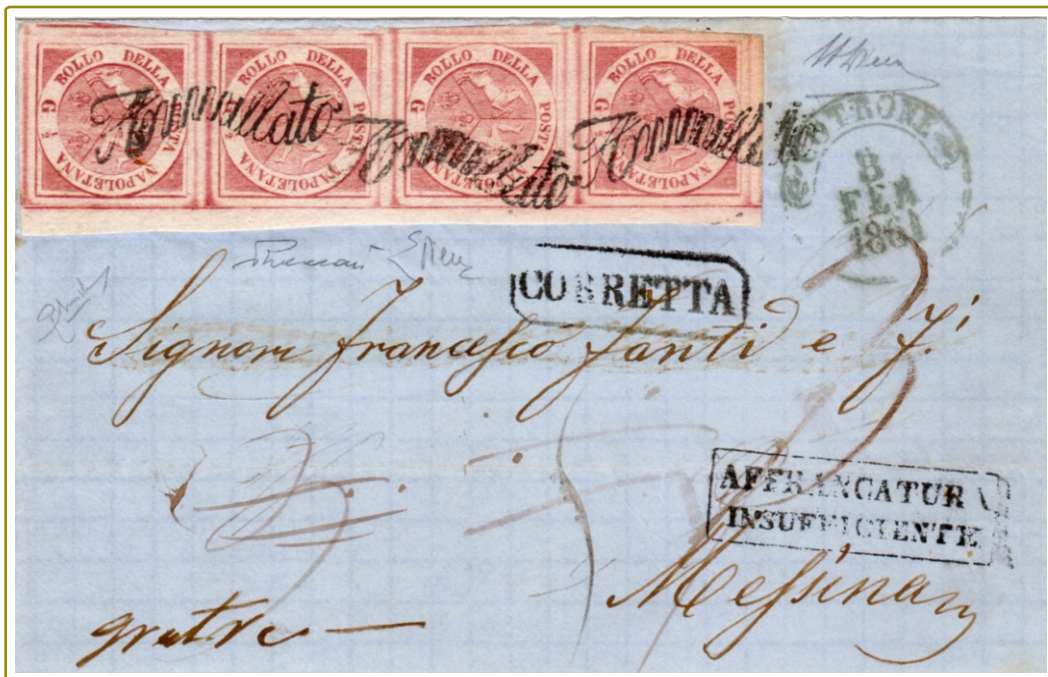 G BOLLO DELLA POSTA NAPOLETANA
G BOLLO DELLA POSTA NAPOLETANA
G BOLLO DELLA POSTA NAPOLETANA
G BOLLO DELLA POSTA NAPOLETANA
Annullato
Annullato
Annullato
COTRONE
8
FEB
1861
CORRETTA
Signori Francesco Fanti e F.i
AFFRANCATURA
INSUFFICIENTE
Messina